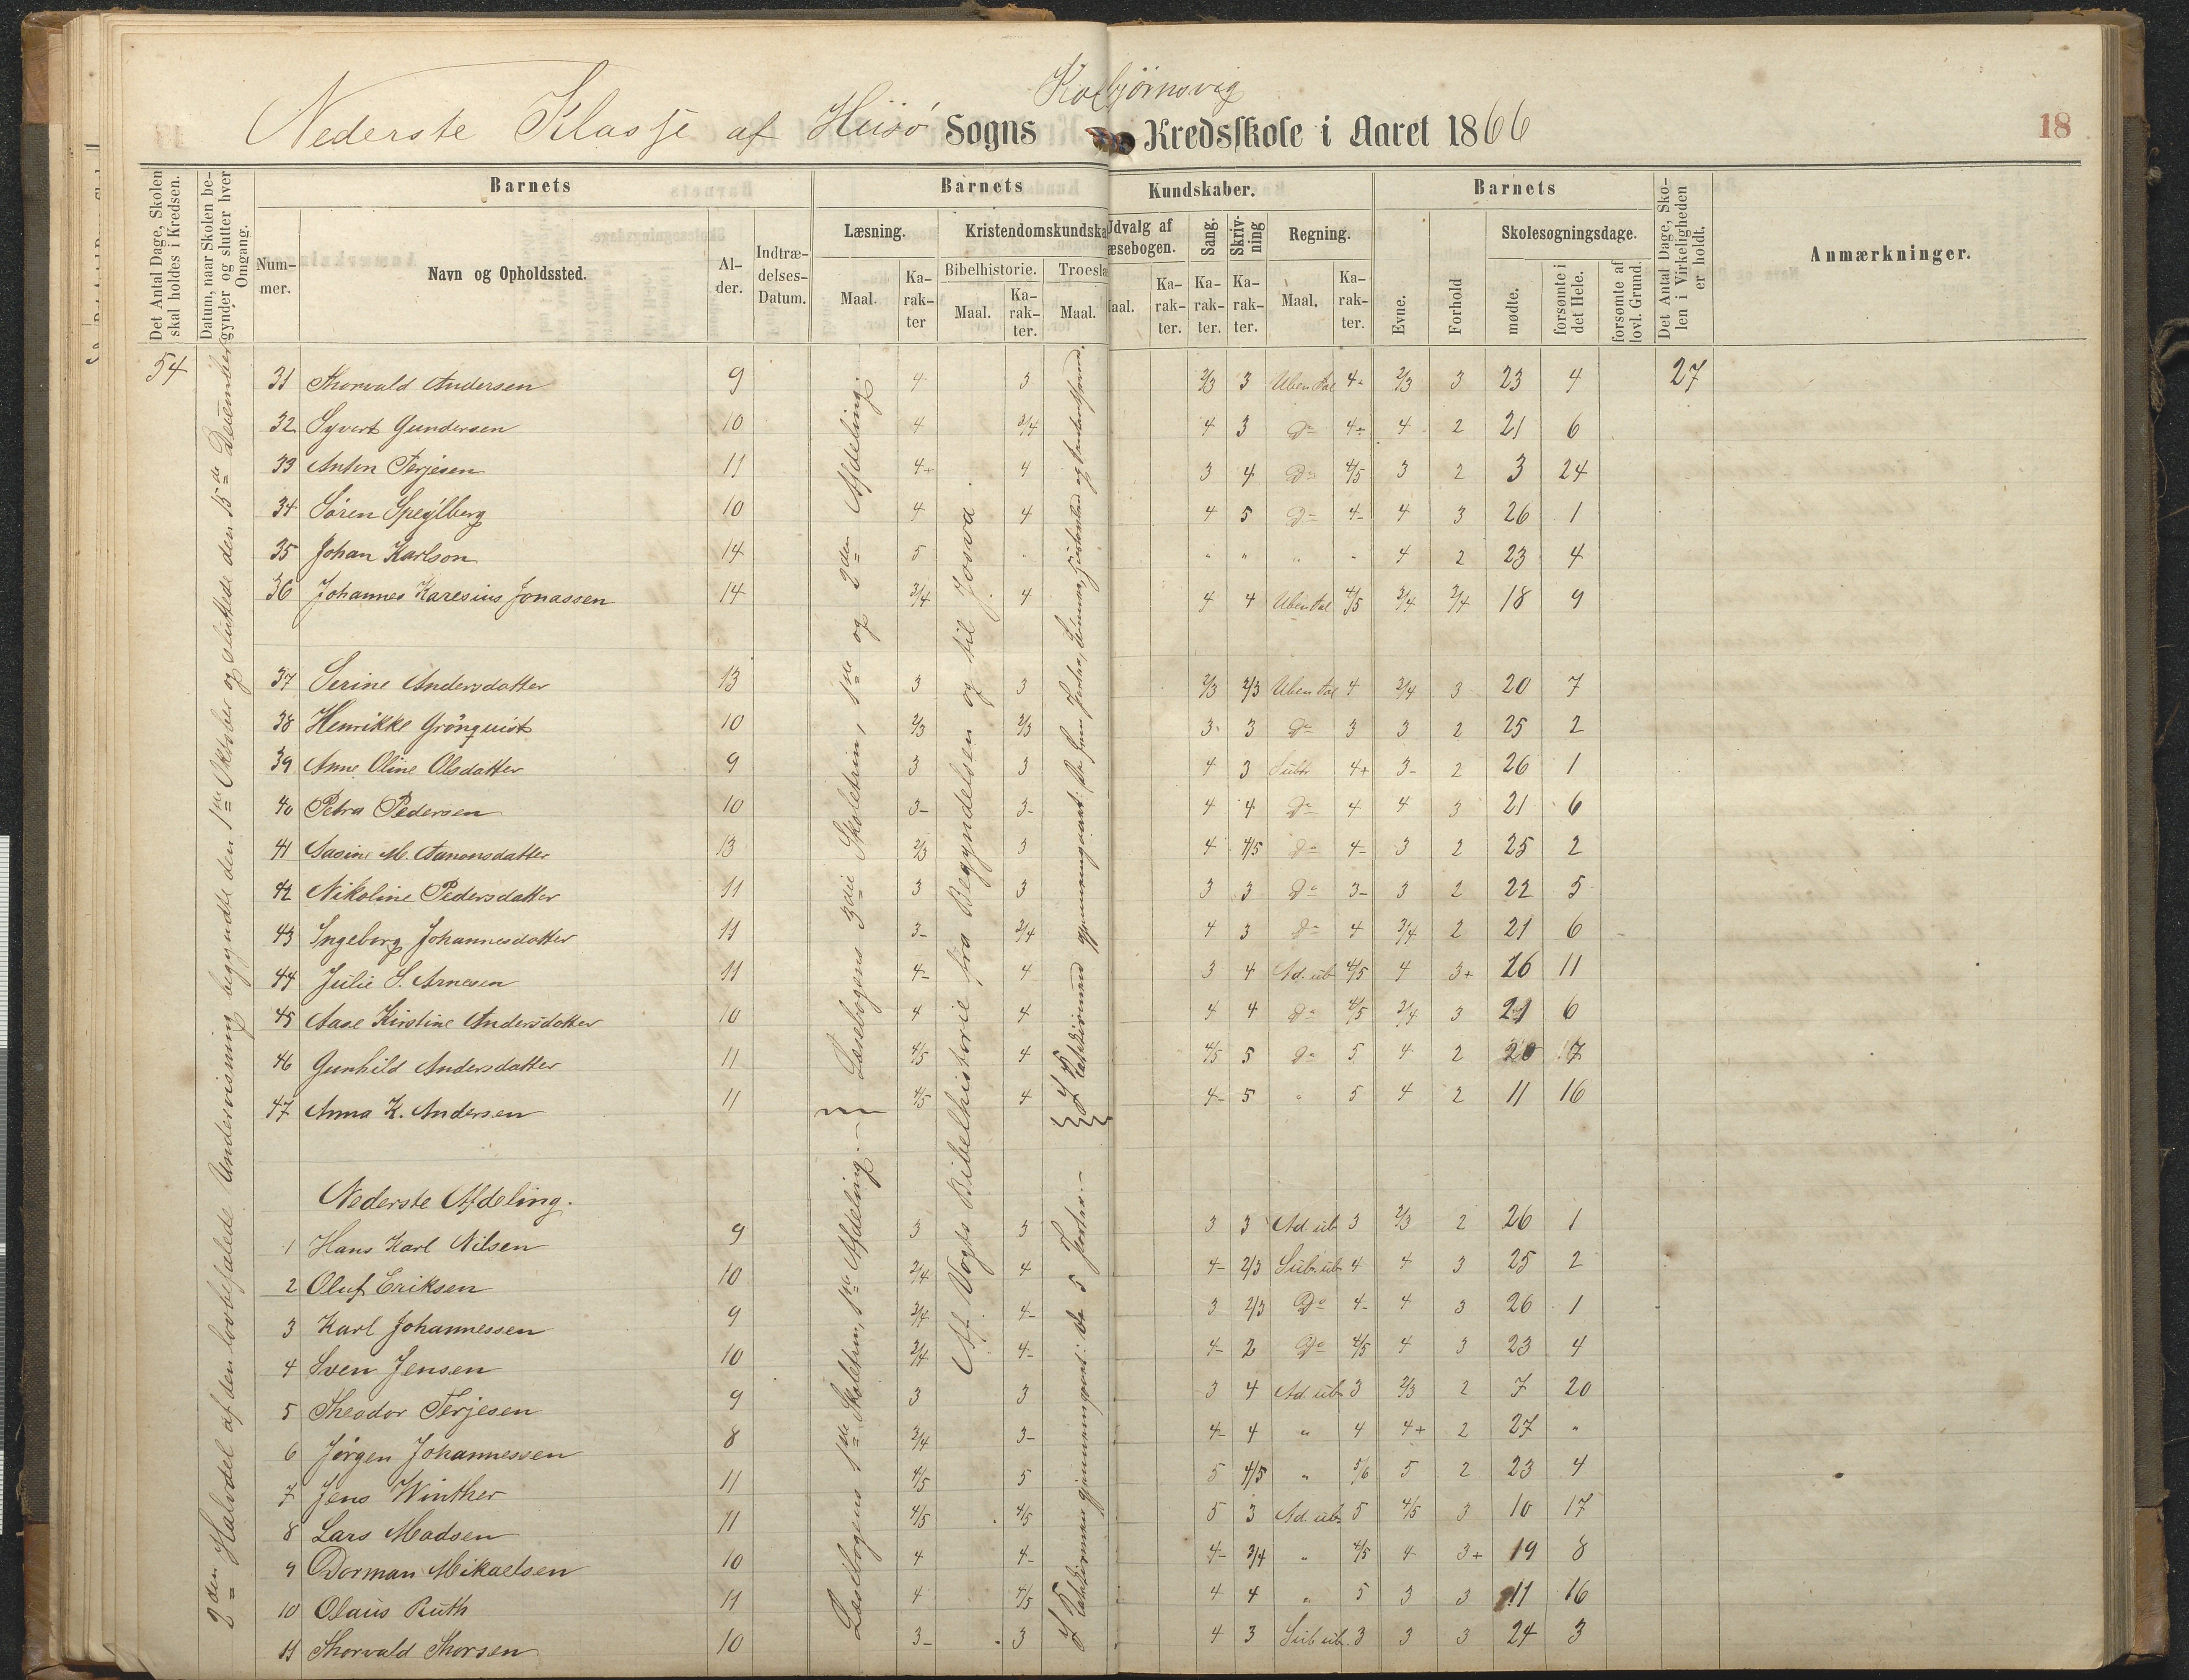 Kolbjørnsvig
Nederste Klasse af Hisø Sogns Kredsskole i Aaret 1866
18
Det Antal Dage, Skolen skal holdes i Kredsen.
Datum, naar Skolen begynder og slutter hver Omgang.
Barnets
Barnets
Kundskaber.
Barnets
Det Antal Dage, Skolen i Virkeligheden er holdt.
Anmærkninger.
Nummer.
Navn og Opholdssted.
Alder.
Indtrædelses-Datum.
Læsning.
Kristendomskundska
Udvalg af
æsebogen.
Sang.
Skrivning
Regning.
Evne.
Forhold
Skolesøgningsdage.
Maal.
Karakter
Bibelhistorie.
Troeslæ
Maal.
Karakter.
Maal.
Maal.
Karakter.
Karakter.
Karakter.
Maal.
Karakter.
mødte.
forsømte i det Hele.
forsømte af lovl. Grund.
54
2den Halvdel af den lovbefalede Undervisning begyndte den 1ste Oktober og sluttede den 15de December
Læsebogens 3die Skoletrin, 1ste og 2den Afdeling.
Af Vogts Bibelhistorie fra Begyndelsen og til Josva.
31 Thorvald Andersen 9 4 3 2/3 3 Uben Tal 4- 2/3 3 23 4 27
32 Syvert Gundersen 10 4 3/4 4 3 Do 4- 4 2 21 6
33 Anton Terjesen 11 4+ 4 3 4 Do 4/5 3 2 3 24
34 Søren Speilberg 10 4 4 4 5 Do 4- 4 3 26 1
35 Johan Karlson 14 5 " " " " " 4 2 23 4
36 Johannes Karesius Jonassen 14 3/4 4 4 4 Uben Tal 4/5 3/4 3/4 18 9
37 Serine Andersdatter 13 3 3 2/3 2/3 Uben Tal 4 3/4 3 20 7
38 Henrikke Grönquist 10 2/3 2/3 3 3 Do 3 3 2 25 2
39 Anne Oline Olsdatter 9 3 3 4 3 Subtr 4+ 3- 2 26 1
40 Petra Pedersen 10 3- 3- 4 4 Do 4 4 3 21 6
41 Aasine M. Aanonsdatter 13 2/3 3 4 4/5 Do 4- 3 2 25 2
42 Nikoline Pedersdatter 11 3 3 3 3 Do 3- 3 2 22 5
43 Ingeborg Johannesdatter 11 3- 3/4 4 3 Do 4 3/4 2 21 6
44 Julie S. Arnesen 11 4- 4 3 4 Ad. ub 4/5 4 3+ 16 11
45 Aase Kirstine Andersdatter 10 4 4 4 4 Do 4/5 3/4 3 21 6
46 Gunhild Andersdatter 11 4/5 4 4/5 5 Do 5 4 2 20 7
47 Anna K. Andersen 11 4/5 4 4- 5 " 5 4 2 11 16
Nederste Afdeling.
Læsebogens 1ste Skoletrin, 1ste Afdeling.
I Katekismen gjennemgaaet: de 5 Parter.
1 Hans Karl Nilsen 9 3 3 3 3 Ad. ub 3 2/3 2 26 1
2 Oluf Eriksen 10 3/4 4 4- 2/3 Sub. ub 4 4 3 25 2
3 Karl Johannessen 9 3/4 4- 3 2/3 Do 4- 4 3 26 1
4 Sven Jensen 10 3/4 4- 4- 2 Do 4/5 4 3 23 4
5 Theodor Terjesen 9 3 3 3 4 Ad. ub 3 2/3 2 7 20
6 Jørgen Johannessen 8 3/4 3- 4- 4 " 4 4+ 2 27 "
7 Jens Winther 11 4/5 5 5 4/5 " 5/6 5 2 23 4
8 Lars Madsen 11 4/5 4/5 5 3 Ad. ub 5 4/5 3 10 17
9 Dorman Mikaelsen 10 4 4- 4- 3/4 " 4/5 4 3+ 19 8
10 Olaus Ruth 11 4 4/5 4 4 " 5 3 3 11 16
11 Thorvald Thorsen 10 3- 3 4 3 Sub ub. 3 3 3 24 3